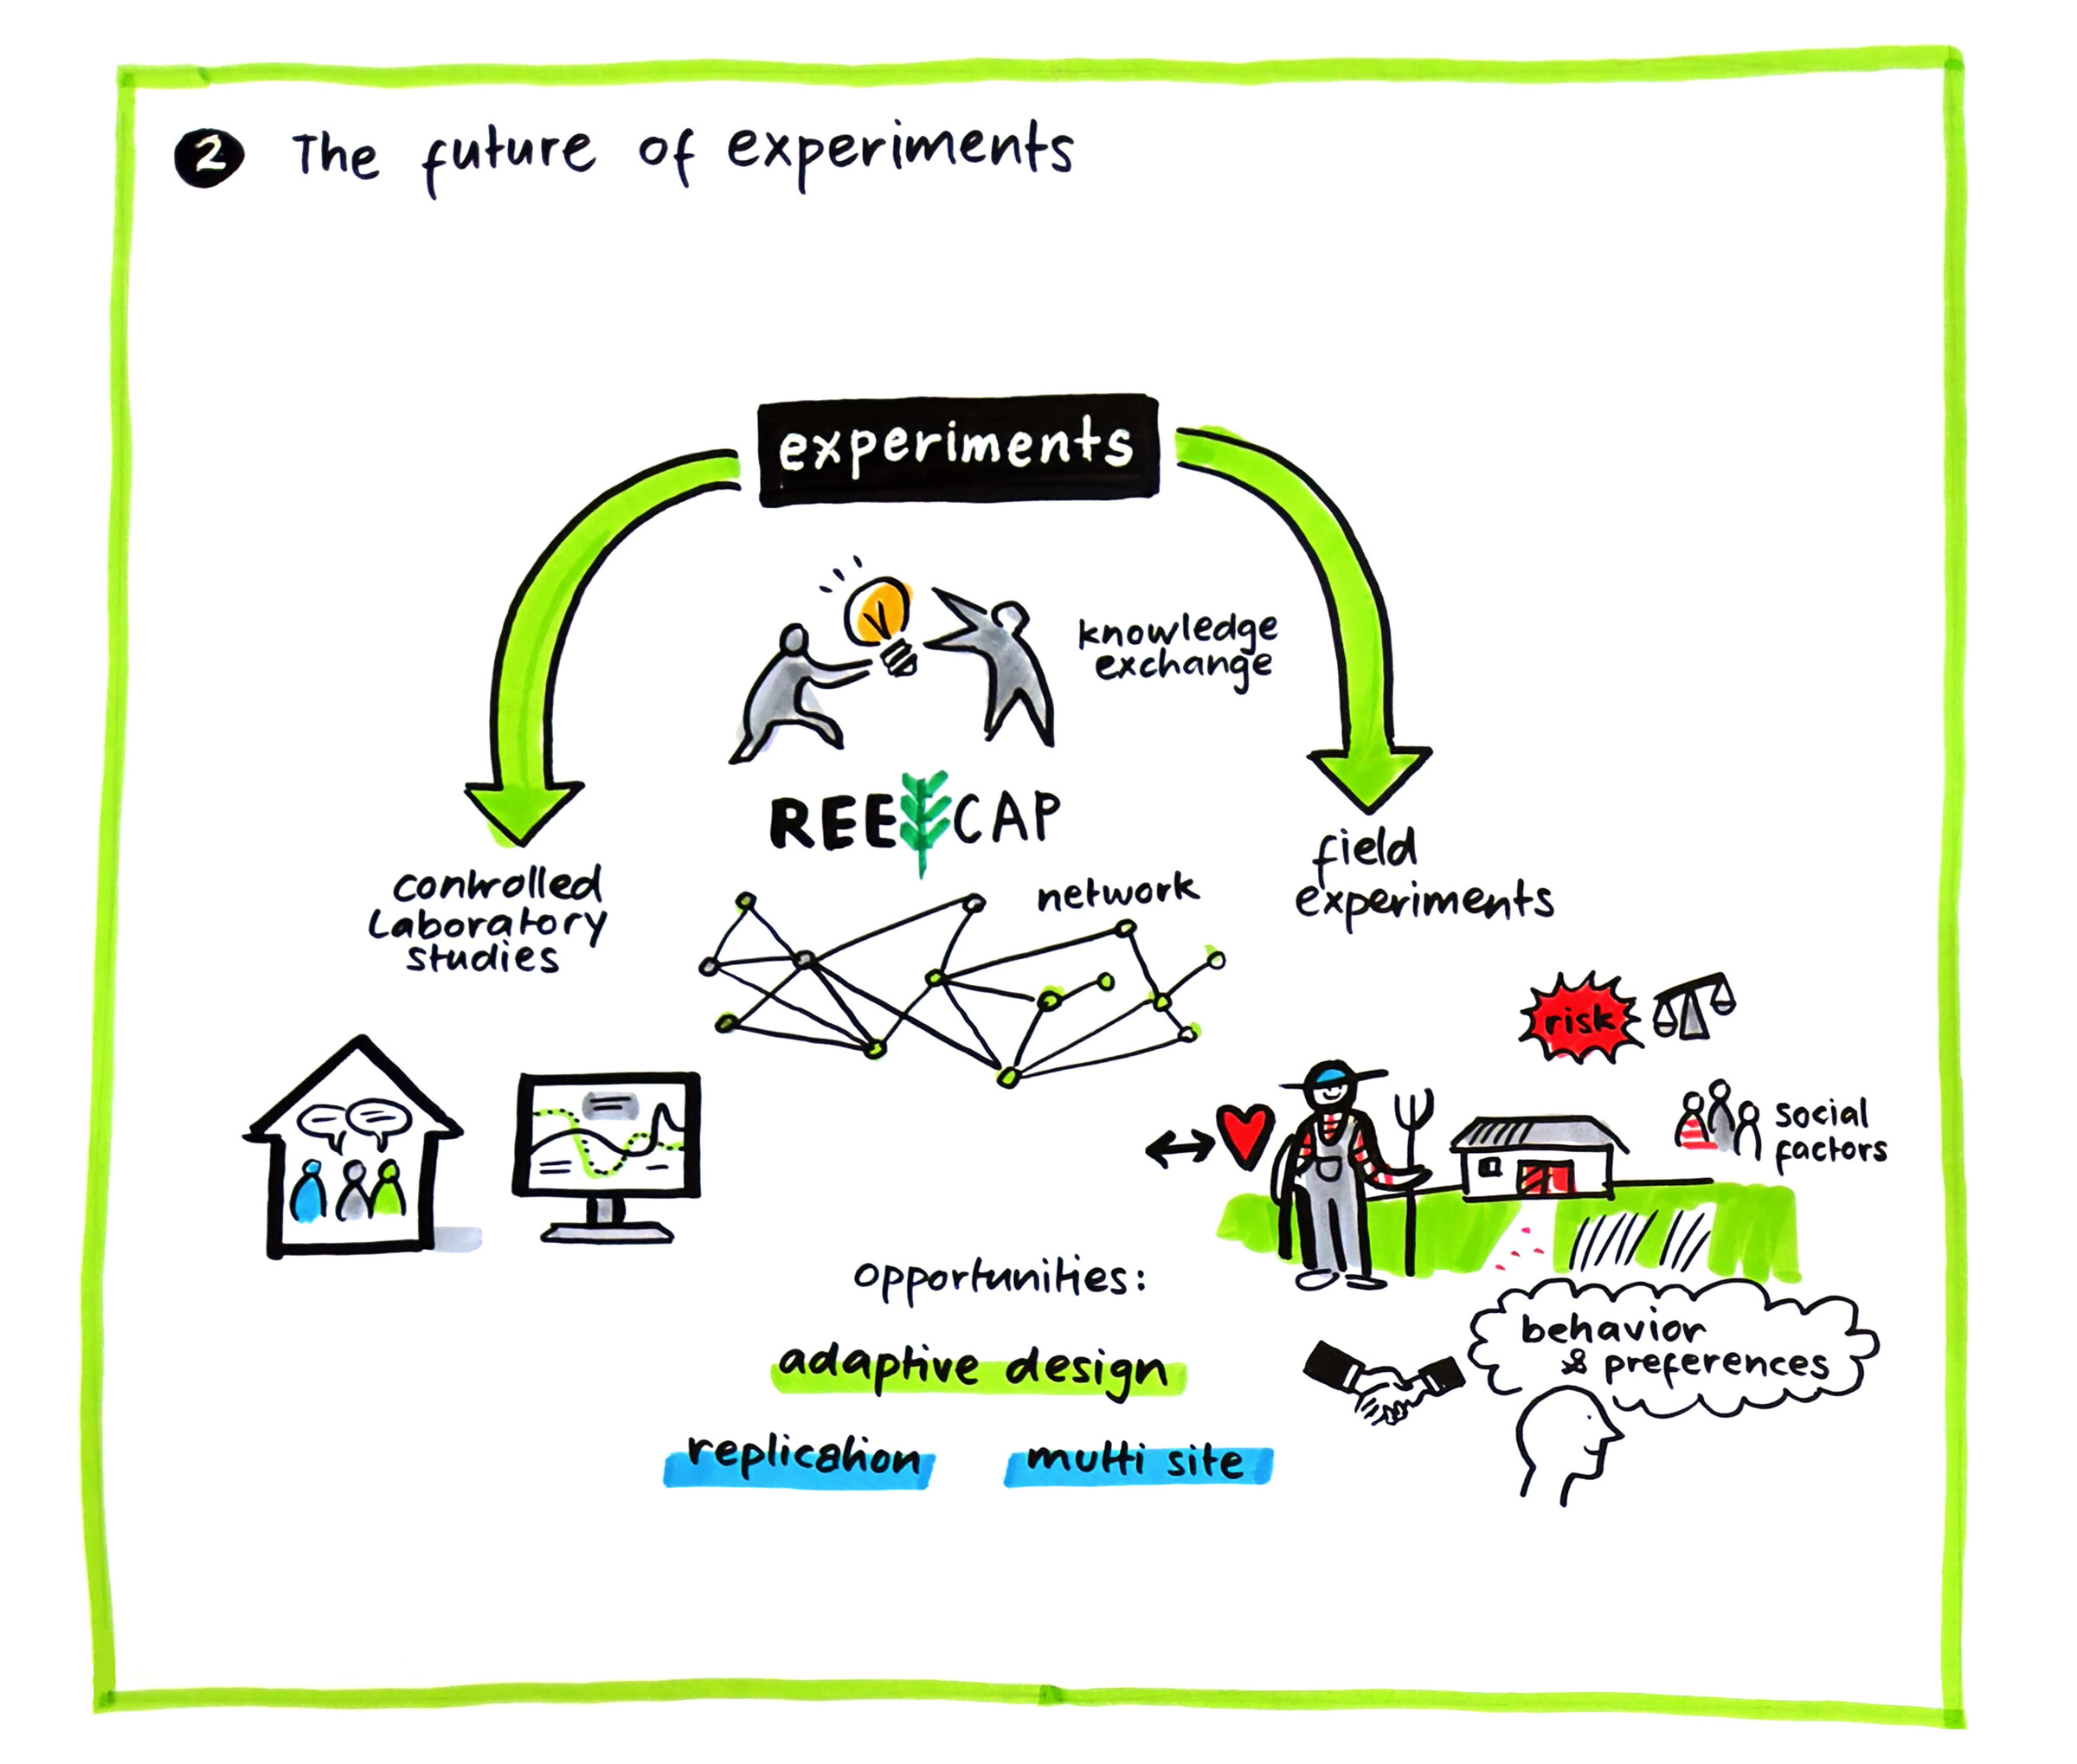 2 The future of experiments
experiments
knowledge
exchange
REECAP
controlled
Laboratory
studies
network
field
experiments
risk
social
factors
opportunities:
adaptive design
replication
multi site
behavior
& preferences